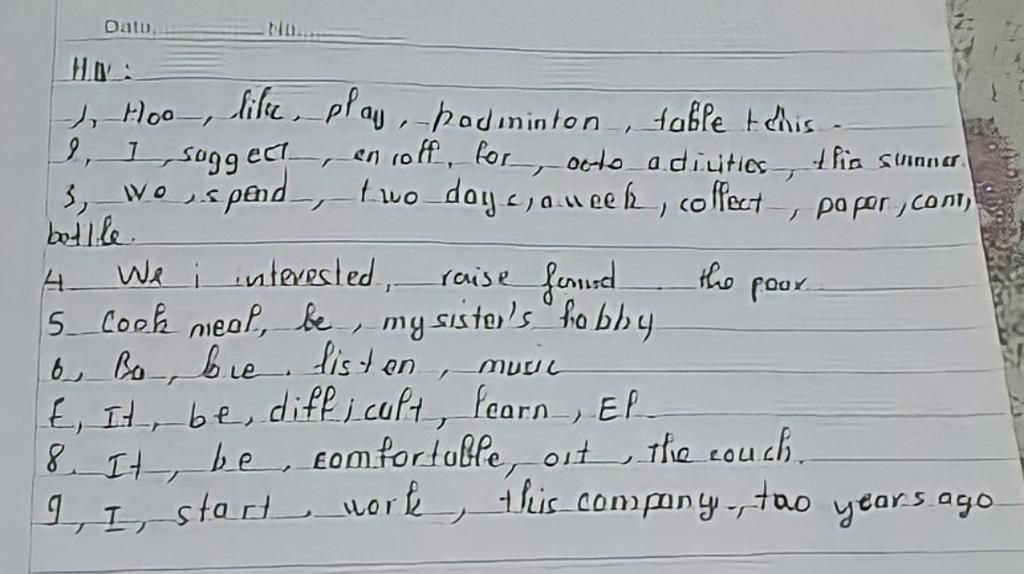 Date. No.
H.W:
1, Hoa, like, play, badminton, table t
2, I, suggest, enroll, for, activities, this summer.
3, We, spend, two days, a week, collect, paper, cans,
bottle.
4. We, interested, raise the poor
5. Cook meal, be, my sister's hobby
6, Ba, listen, music
It, be, difficult, learn, EL
8. It, be, comfortable, the couch.
9, I, start, work, this company, two years ago